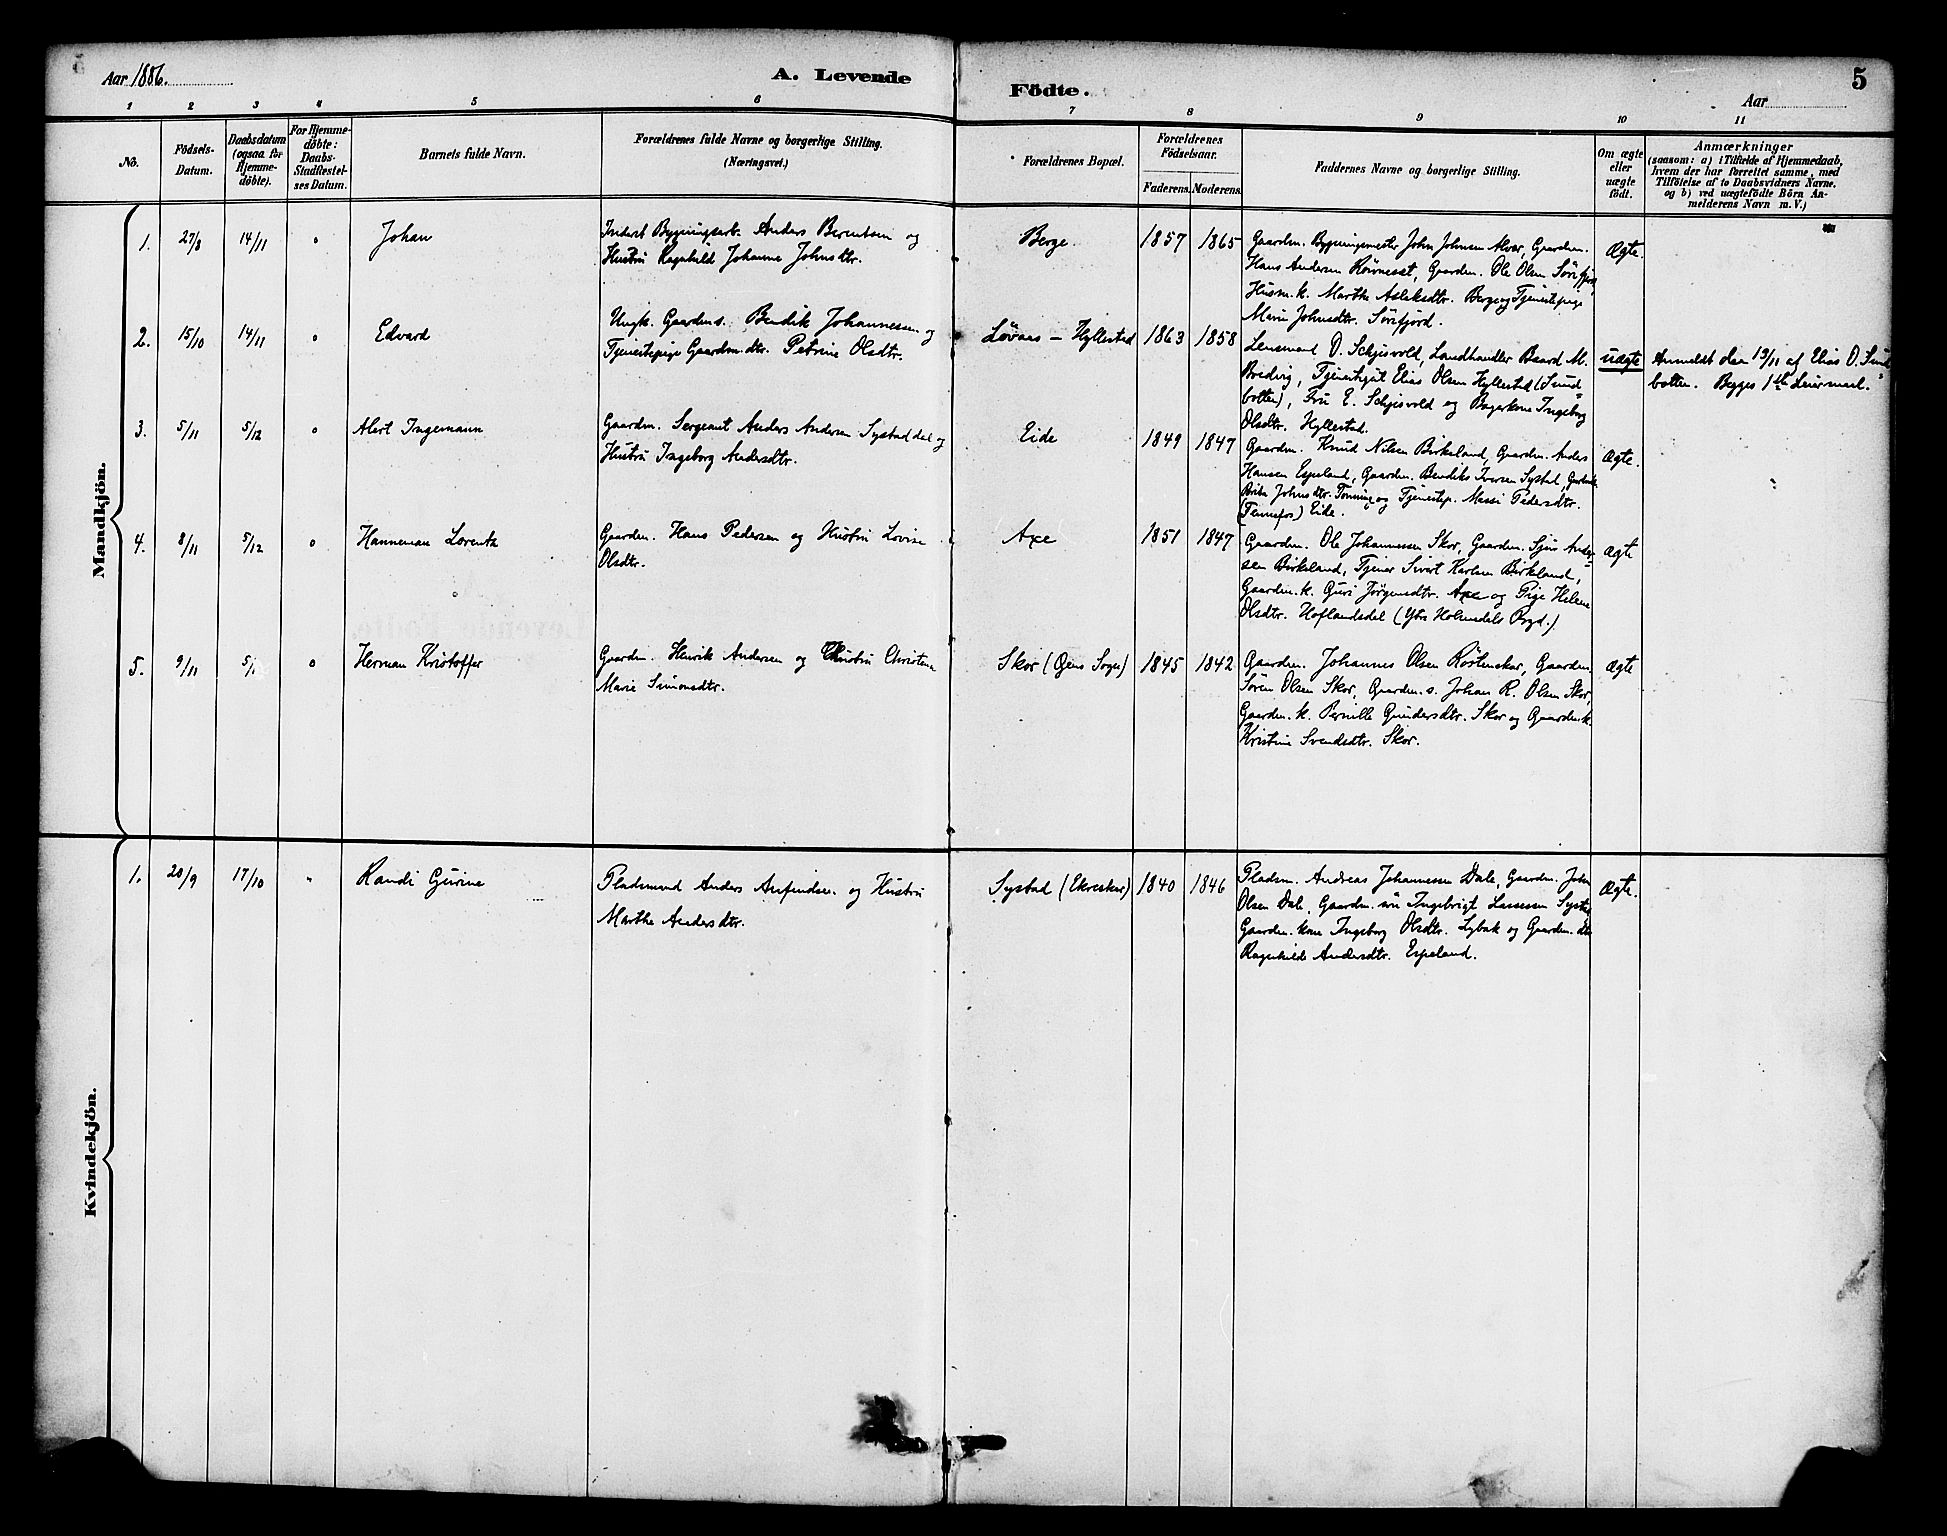 Aar 1886.
A. Levende
Födte.
Aar
5
1 2 3 4 5 6 7 8 9 10 11
No.
Födsels-
Datum.
Daabsdatum
(ogsaa for
Hjemme-
døbte).
For Hjemme-
døbte:
Daabs-
Stadfæstel-
ses Datum.
Barnets fulde Navn.
Forældrenes fulde Navne og borgerlige Stilling.
(Næringsvei.)
Forældrenes Bopæl.
Forældrenes
Födselsaar.
Faderens. Moderens.
Faddernes Navne og borgerlige Stilling.
Om ægte
eller
uægte
født.
Anmærkninger
(saasom: a) i Tilfælde af Hjemmedaab,
hvem der har forrettet samme, med
Tilföielse af to Daabsvidners Navne.
og b) ved uægtefödte Börn An-
melderens Navn m.V.)
Mandkjön.
1. 27/8 14/11 Johan
Inderst Bygningsarb. Anders Berentsen og
Hustru Ragnhild Johanne Johnsdtr.
Berge 1857 1865
Gaardm. Bygningsmester John Johnsen Alvær, Gaardm.
Hans Andersen Rövnesset, Gaardm. Ole Olsen Sörefjord,
Husm.k. Marthe Aslaksdtr. Berge og Tjenestepige
Marie Johnsdtr. Sörefjord.
Ægte.
2. 15/10 14/11 o Edvard
Ungk. Gaardm.s. Bendik Johannessen og
Tjenestepige Gaardm.dtr. Petrine Olsdtr.
Lövaas – Hyllestad 1863 1858
Lensmand O. Schjisvold, Landhandler Baard M.
Bredvig, Tjenestegut Elias Olsen Hyllestad (Sund
botten), Fru E. Schjisvold og Bagerkone Ingeborg
Olsdtr. Hyllestad.
uægte
Anmeldt daa 13/11 af Elias O. Sund
botten. Begges 1ste Leiermaal.
3. 5/11 5/12 o Alert Ingemann
Gaardm. Sergeant Anders Andersen Systaddal og
Hustru Ingeborg Andersdtr.
Eide 1849 1847
Gaardm. Knud Nilsen Birkeland, Gaardm. Anders
Hansen Espeland, Gaardm. Bendiks Iversen Systad,
Brita Johnsdtr. Tönning og Tjenestep. Massi Pedersdtr.
(Tennefos) Eide.
Ægte.
4. 8/11 5/12 o Hanneman Lorentz
Gaardm. Hans Pedersen og Hustru Lovise
Olsdtr.
Axe 1851 1847
Gaardm. Ole Johannessen Skor, Gaardm. Sjur Ander
sen Birkeland, Tjener Sivert Karlsen Birkeland,
Gaardm.k. Guri Jörgensdtr. Axe og Pige Helene
Olsdtr. Hoflandsdal (Ytre Holmedals Prgd.)
Ægte
5. 9/11 5/1 o Herman Kristoffer
Gaardm. Henrik Andersen og Hustru Christine
Marie Simonsdtr.
Skor (Öens Sogn) 1845 1842
Gaardm. Johannes Olsen Röstenskar, Gaardm.
Sören Olsen Skor, Gaardm.s. Johan R. Olsen Skor,
Gaardm.k. Pernille Gundersdtr. Skor og Gaardm.k.
Kristine Svendsdtr. Skor.
Ægte
Kvindekjön.
1. 20/9 17/10 " Randi Gurine
Pladsmand Anders Anfindsen og Hustru
Marthe Andersdtr.
Systad (Ekreskar) 1840 1846
Pladsm. Andreas Johannessen Dale, Gaardm. John
Olsen Dale, Gaardm. sön Ingebrigt Lassesen Systad
Gaardm. kone Ingeborg Olsdtr. Lybak og Gaardm. dtr
Ragnhilde Andersdtr. Espeland.
Ægte.